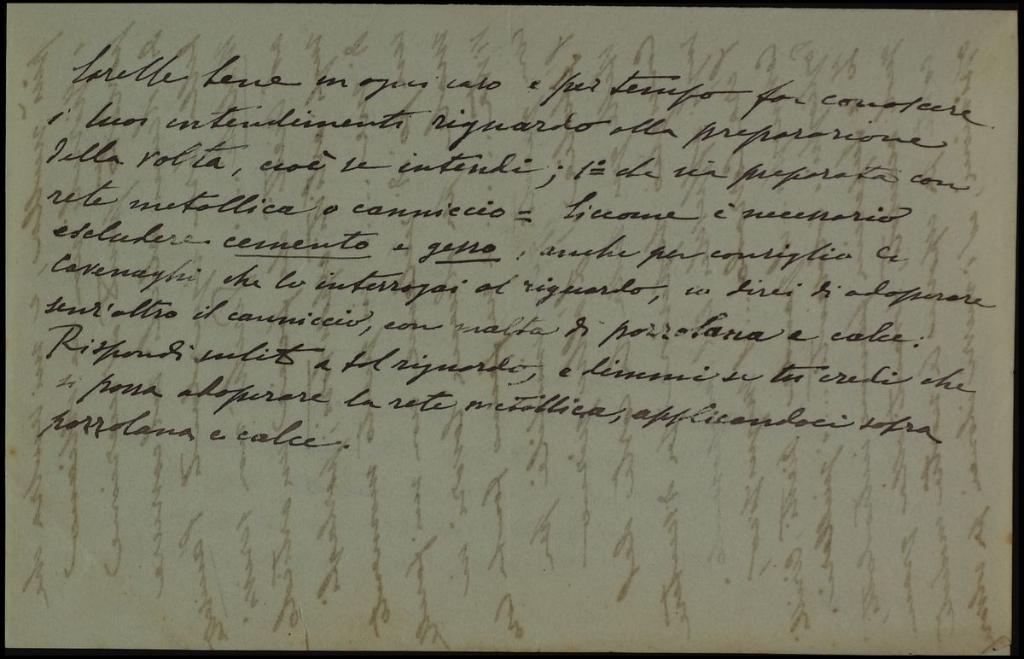 Sarebbe bene in ogni caso e per tempo far conoscere
i tuoi intendimenti riguardo alla preparazione
della volta, cioè se intendi; 1º che sia preparata con
rete metallica o canniccio = Siccome è necessario
escludere cemento e gesso, anche per consiglio
Cavenaghi che lo interrogai al riguardo, io direi di adoperare
senz'altro il canniccio, con malta di pozzolana e calce.
Rispondi subito a tal riguardo, e dimmi se tu credi che
si possa adoperare la rete metallica, applicandoci sopra
pozzolana e calce.